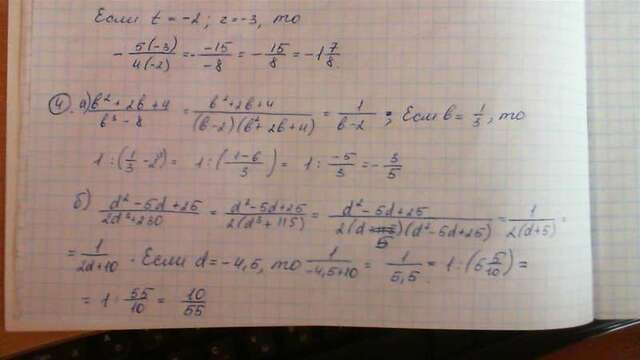 Если t = -2; z = -3, то
- 5(-3)/4(-2) = - -15/-8 = - 15/8 = -1 7/8.
④. а) b² + 2b + 4/b³ - 8 = b² + 2b + 4/(b - 2)(b² + 2b + 4) = 1/b - 2; Если b = 1/3, то
1 : (1/3 - 2) = 1 : (1 - 6/3) = 1 : -5/3 = - 3/5
б) d² - 5d + 25/2d³ + 230 = d² - 5d + 25/2(d³ + 115) = d² - 5d + 25/2(d + 5)(d² - 5d + 25) = 1/2(d + 5) =
= 1/2d + 10. Если d = -4,5, то 1/-4,5 + 10 = 1/5,5 = 1 : (5 5/10) =
= 1 : 55/10 = 10/55